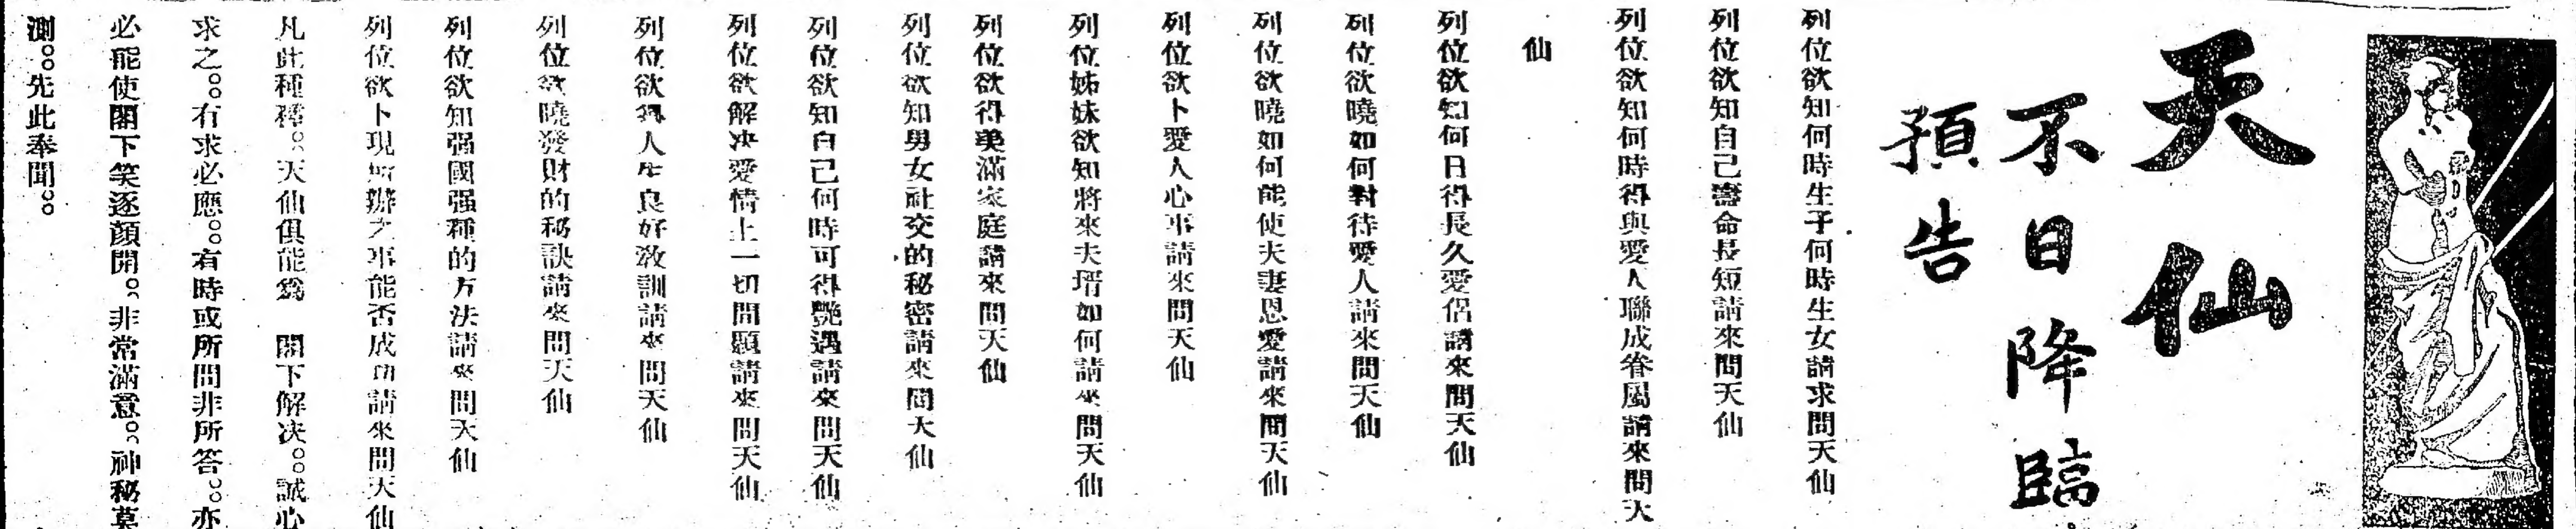 天仙
不日降臨
預告
列位欲知何時生子何時生女請求問天仙
列位欲知自己壽命長短請來問天仙
列位欲知何時得與愛人聯成眷屬請來問天
仙
列位欲知何日得長久愛侶請來問天仙
列位欲曉如何對待愛人請來問天仙
列位欲曉如何能使夫妻恩愛請來問天仙
列位欲卜愛人心事請來問天仙
列位姊妹欲知將來夫壻如何請來問天仙
列位欲得美滿家庭請來問天仙
列位欲知男女社交的秘密請來問天仙
列位欲知自己何時可得艷遇請來問天仙
列位欲解决愛情上一切問題請來問天仙
列位欲得人生良好教訓請來問天仙
列位欲曉發財的秘訣請來問天仙
列位欲知强國强種的方法請來問天仙
列位欲卜現所辦之事能否成功請來問天仙
凡此種種。。天仙俱能爲　閣下解决。。誠心
求之。。有求必應。。有時或所問非所答。。亦
必能使閣下笑逐顏開。。非常滿意。。神秘莫
測。。先此奉聞。。